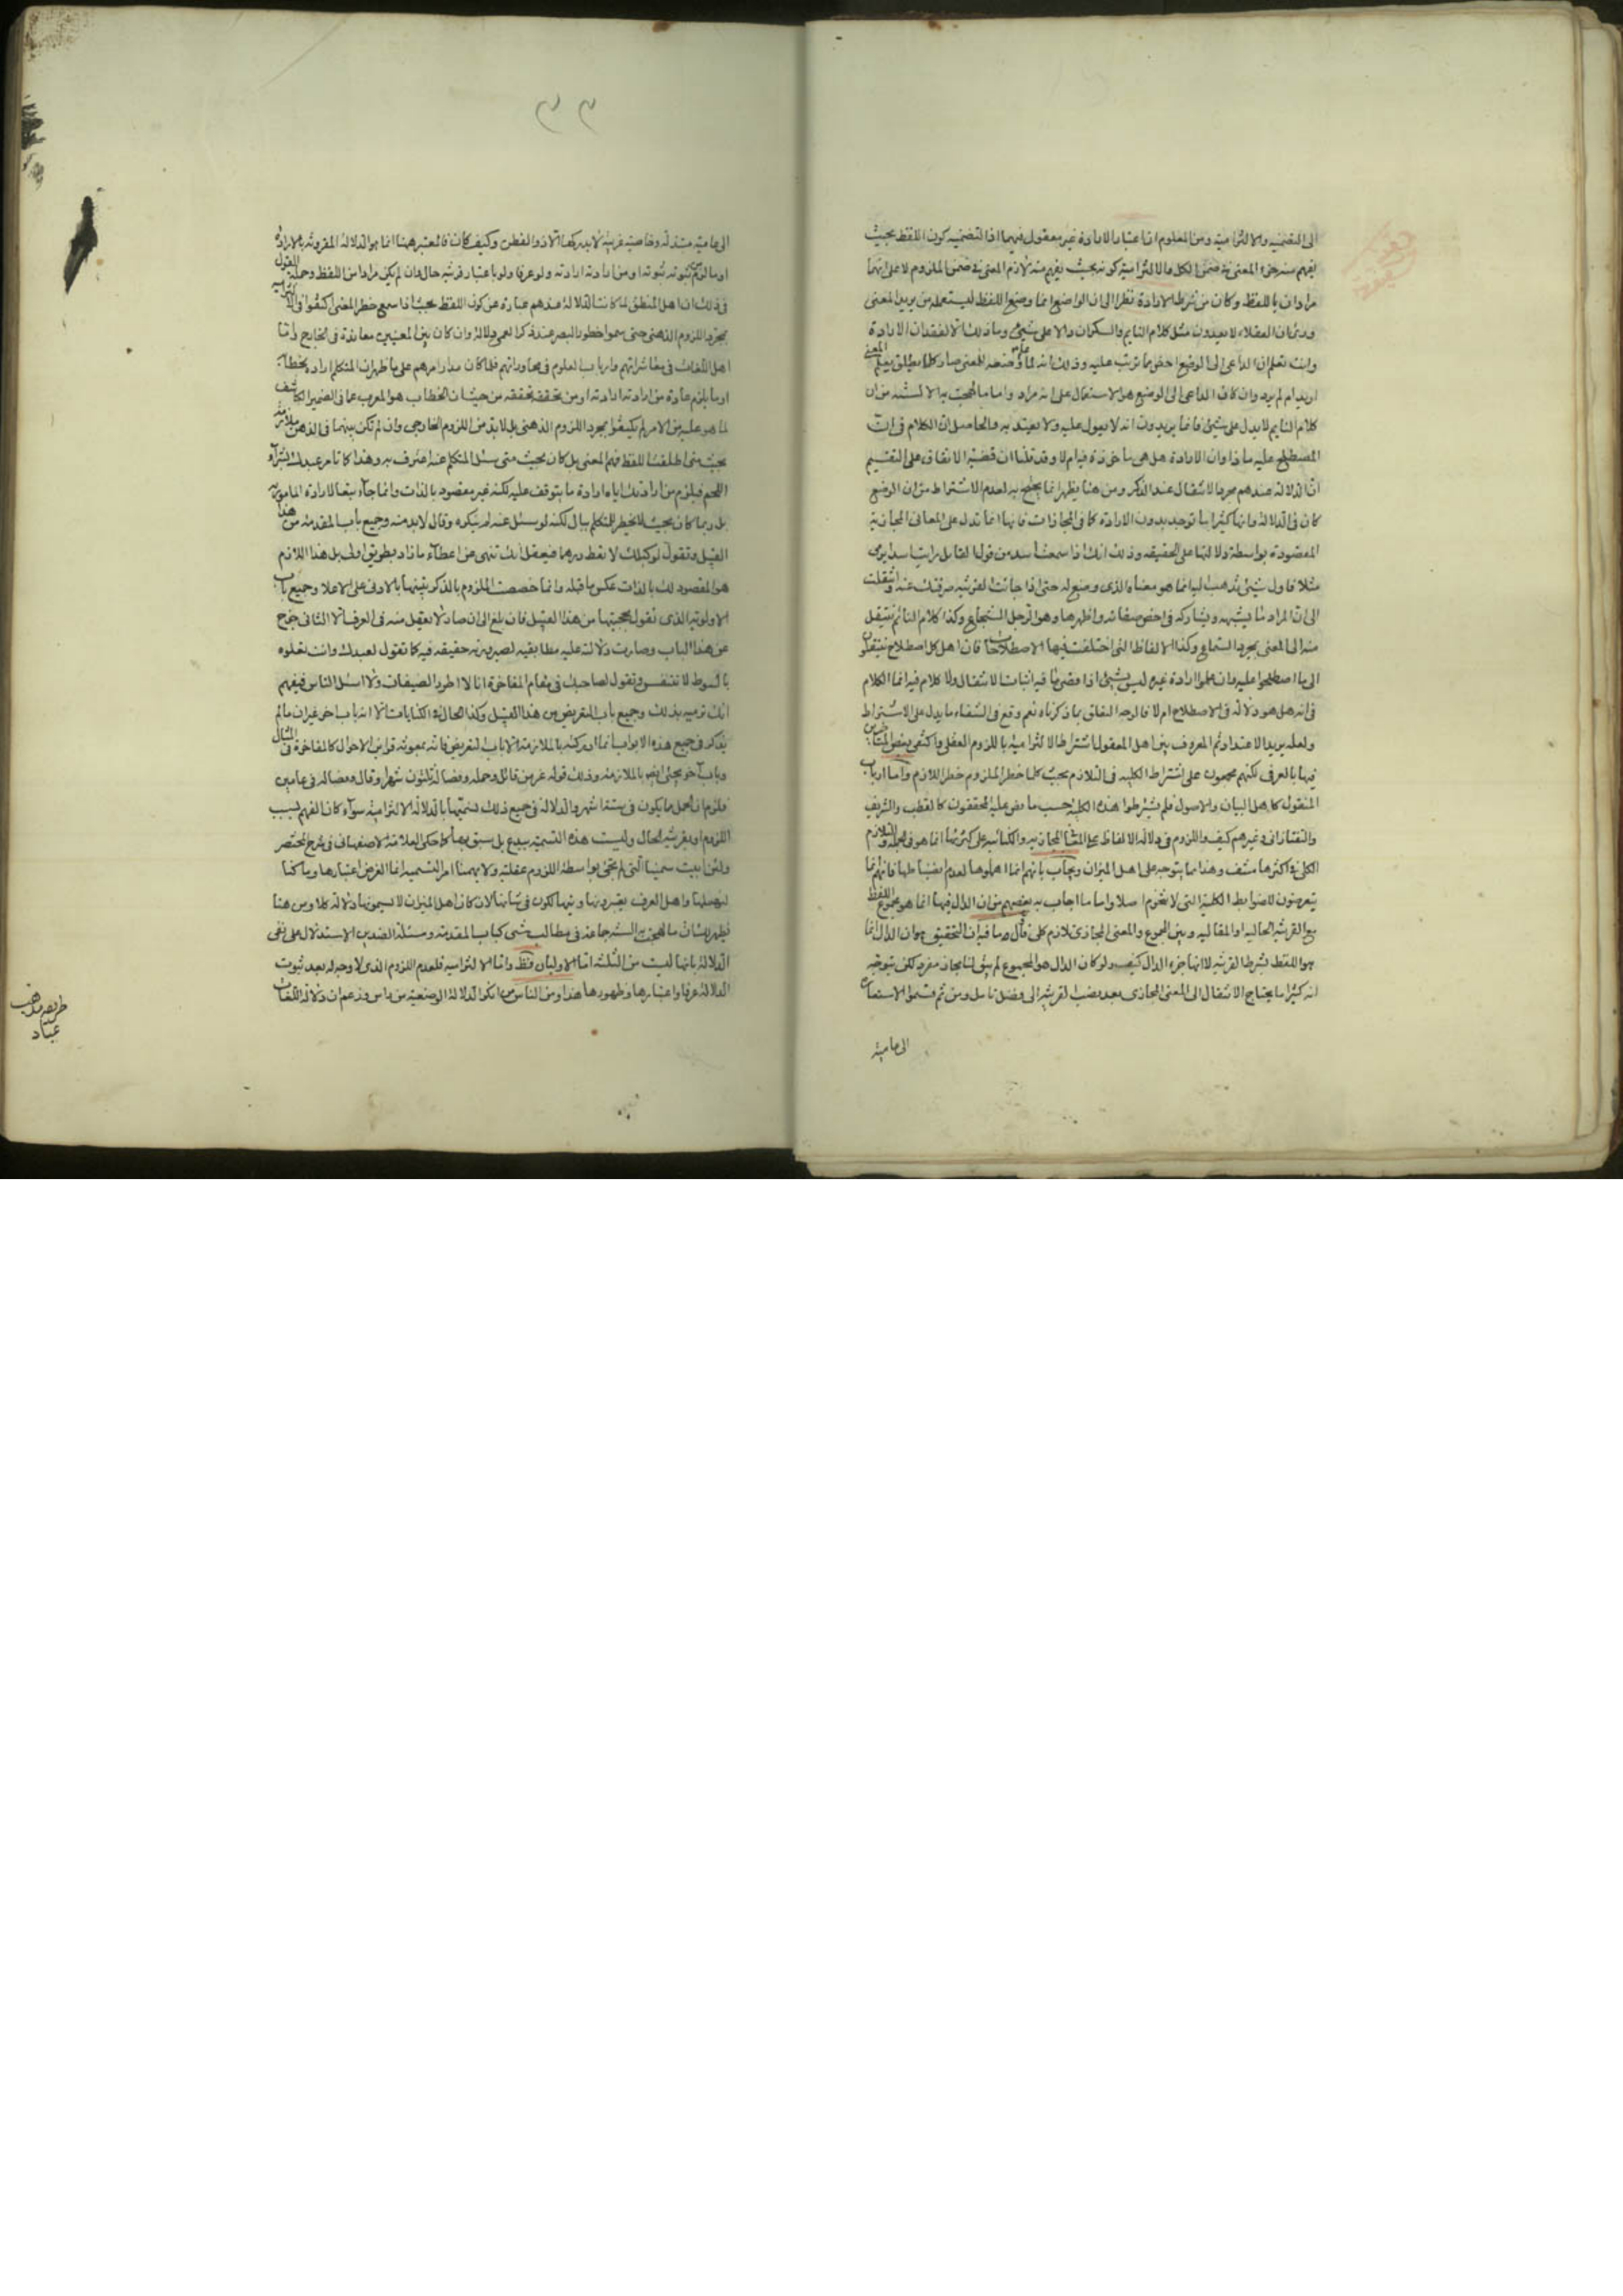 الى التضمنيه والالتزامية ومن المعلوم ان اعتبار الارادة غير معقول فيهما اذ التضمنيه كون اللفظ بحيث
يفهم منه جزء المعنى في ضمن الكل والالتزامية كونه بحيث يفهم منه لازم المعنى في ضمن الملزوم لا على انهما
مرادان باللفظ وكان من شرط الارادة نظر الى ان الواضع انما وضع اللفظ ليستعمله من يريد المعنى
وراى ان العقلاء لا يعدون مثل كلام النايم والسكران دالا على شيئ وما ذلك الا لفقدان الارادة
وانت تعلم ان الداعى الى الوضع اخص مما ترتب عليه وذلك انه لما وضعه للمعنى صار كلما يطلق يعلم المعنى
اريد ام لم يرد وان كان الداعى الى الوضع هو الاستعمال على انه مراد واما ما لهجت به الالسنه من ان
كلام النايم لا يدل على شيئ فانما يريدون انه لا يعول عليه ولا يعتد به والحاصل ان الكلام في ان
المصطلح عليه ماذا وان الارادة هل هى ماخوذة فيه ام لا وقد قلنا ان قضية الاتفاق على التقسيم
ان الدلالة عندهم مجرد الانتقال عند الذكر ومن هنا يظهر انما يحتج به لعدم الاشتراط من ان الوضع
كان في الدلالة وانها كثيرا ما توجد بدون الارادة كما في المجازات فانها انما تدل على المعاني المجازية
المقصودة بواسطة دلالتها على الحقيقه وذلك انك اذا سمعت اسد من قول القايل رايت اسدا يرمى
مثلا فاول شيئ تذهب اليه انما هو معناه الذى وضع له حتى اذا جائت القرينه صرفتك عنه وانتقلت
الى ان المراد ما يشبهه ويشاركه في اخص صفاته واظهرها وهو الرجل الشجاع وكذا كلام النائم ينتقل
منه الى المعنى بمجرد السماع وكذا الالفاظ التى اختلفت فيها الاصطلاحات فان اهل كل اصطلاح ينتقلون
الى ما اصطلحوا عليه وان علموا ارادة غيره ليس بشيئ اذا قضى ما فيه اثبات الانتقال ولا كلام فيه انما الكلام
في انه هل هو دلالة في الاصطلاح ام لا فالوجه التعلق بما ذكرناه نعم وقع في الشفاء ما يدل على الاشتراط
ولعله يريد الاعتداد ثم المعروف بين اهل المعقول اشتراط الالتزامية باللزوم العقلى واكتفى بعض المتاخرين
فيها بالعرفى لكنهم مجمعون على اشتراط الكليه في التلازم بحيث كلما خطر الملزوم خطر اللازم واما ارباب
المنقول كاهل البيان والاصول فلم يشترطوا هذه الكلية حسب ما نص عليه المحققون كالقطب والشريف
والتفتازانى وغيرهم كيف واللزوم في دلالة الالفاظ المجازيه والكنائيه على كثرتها انما هو في الجملة والتلازم
الكلى في اكثرها منتف وهذا مما يتوجه على اهل الميزان ويجاب بانهم انما اهملوها لعدم انضباطها فانهم انما
يتعرضون للضوابط الكلية التى لا تنخرم اصلا واما ما اجاب به بعضهم من ان الدال فيها انما هو مجموع اللفظ
مع القرينة الحاليه او المقاليه وبين المجموع والمعنى المجازى تلازم كلى فيه ان التحقيق هو ان الدال انما
هو اللفظ بشرط القرينه لا انها جزء الدال كيف ولو كان الدال هو المجموع لم يبق لنا مجاز مفرد لكن يتوجه
انه كثيرا ما يحتاج الانتقال الى المعنى المجازى بعد نصب القرينه الى فضل تامل ومن ثم قسموا الاستعارة
الى عامية
٣٣
الى عامية مبتذلة وخاصية غريبة لا يدركها الا ذو الفطن وكيف كان فالمعتبر ههنا انما هو الدلالة المقرونه بالارادة
في ذلك ان اهل المنطق لما كانت الدلالة عندهم عبارة عن كون اللفظ بحيث اذا سمع خطر المعنى اكتفوا في الالتزاميه
بمجرد اللزوم الذهنى حتى سموا خطور البصر عند ذكر العمى دلالة وان كان بين المعنيين معاندة في الخارج واما
اهل اللغات في معاشراتهم وارباب العلوم في محاوراتهم فلما كان مدار امرهم على ما ظهر ان المتكلم اراده بخطابه
او ما يلزم عادة من ارادته ارادته او من تحققه تحققه من حيث ان الخطاب هو المعرب عما في الضمير الكاشف
لما هو عليه من الامر لم يكتفوا بمجرد اللزوم الذهنى بل لا بد من اللزوم الخارجى وان لم تكن بينهما في الذهن ملازمة
بحيث متى اطلقت اللفظ فهم المعنى بل كان بحيث متى سئل المتكلم عنه اعترف به وهذا كما تامر عبدك بشراء
اللحم فيلزم من ارادتك اياه ارادة ما يتوقف عليه لكنه غير مقصود بالذات وانما جاء تبعا لارادة المامور به
بل ربما كان بحيث لا يخطر للمتكلم ببال لكنه لو سئل عنه لم ينكره وقال لا بد منه وجميع باب المقدمة من هذا
القبيل وتقول لوكيلك لا تعط درهما فيعقل انك تنهى عن اعطاء ما زاد بطريق اولى بل هذا اللازم
هو المقصود لك بالذات عكس ما قبله وانما خصصت الملزوم بالذكر تنبيها بالادنى على الاعلا وجميع باب
الاولوية الذى نقول بحجيتها من هذا القبيل فان بلغ الى ان صار لا يعقل منه في العرف الا الثانى خرج
عن هذا الباب وصارت دلالته عليه مطابقيه لصيرورته حقيقه فيه كما تقول لعبدك وانت تعلوه
بالسوط لا تتنفس وتقول لصاحبك في مقام المفاخرة انا لا اطرد الضيفان ولا اسئل الناس فيفهم
انك ترميه بذلك وجميع باب التعريض من هذا القبيل وكذا الحال في الكنايات الا انه باب اخر غير ان ما لم
يذكر في جميع هذه الابواب انما ادركته بالملازمة الا باب التعريض فانه بمعونة قراين الاحوال كالمفاخرة في المثال
وباب اخر يجئ ايضا بالملازمة وذلك قوله عز من قائل وحمله وفصاله ثلثون شهرا وقال وفصاله في عامين
فلزوم ان اقل ما يكون في ستة اشهر والدلالة في جميع ذلك نسميها بالدلالة الالتزامية سواء كان الفهم بسبب
اللزوم او بقرينة الحال وليست هذه التسمية ببدع بل سبق بها كما حكى العلامة الاصفهانى في شرح المختصر
ولئن ابيت سمينا التى لم تجئ بواسطة اللزوم عقلية ولا يهمنا امر التسميه انما الغرض اعتبارها وما كنا
لنهملها واهل العرف يعتبرونها
فظهر لك ان ما لهجت به السنة جماعة في مطالب شتى كباب المقدمة ومسئلة الضدين الاستدلال على نفى
الدلالة بانها ليست من الثلثة اما الاوليان فظ واما الالتزاميه فلعدم اللزوم الذى لا وجه له بعد ثبوت
الدلالة عرفا واعتبارها وظهورها هذا ومن الناس من انكر الدلالة الوضعية من راس وزعم ان دلالة اللغات
عباد